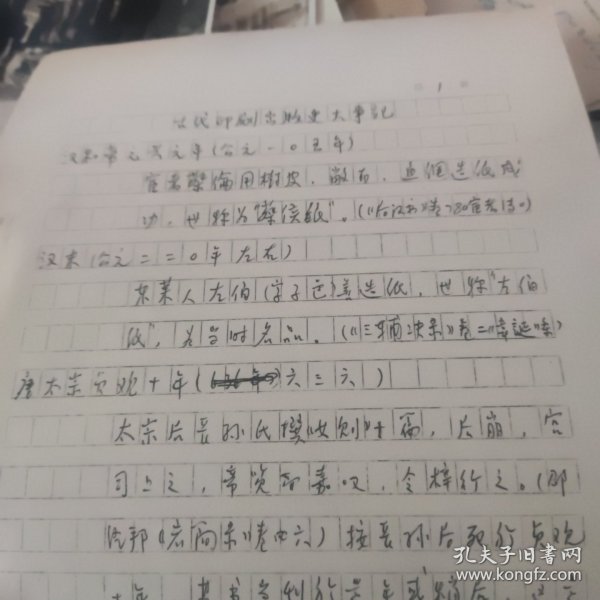 1
古代印刷出版史大事记
汉和帝元兴元年(公元一〇五年)
宦者蔡伦用树皮、敝布、鱼網造纸成
功,世称为"蔡侯纸"。(《后汉书》卷78宦者传)
汉末(公元二二〇年左右)
东莱人左伯(字子邑)善造纸,世称"左伯
纸",为当时名品。(《三辅决录》卷二韦诞条)
唐太宗贞观十年(六三六)
太宗后长孙氏撰《女则》十篇,后崩,宫
司上之,帝览而嘉叹,令梓行之。(邵
经邦《弘简录》卷四六)按长孙后殁于贞观
十年,其书当刊行
孔夫子旧书网
www.kongfz.com